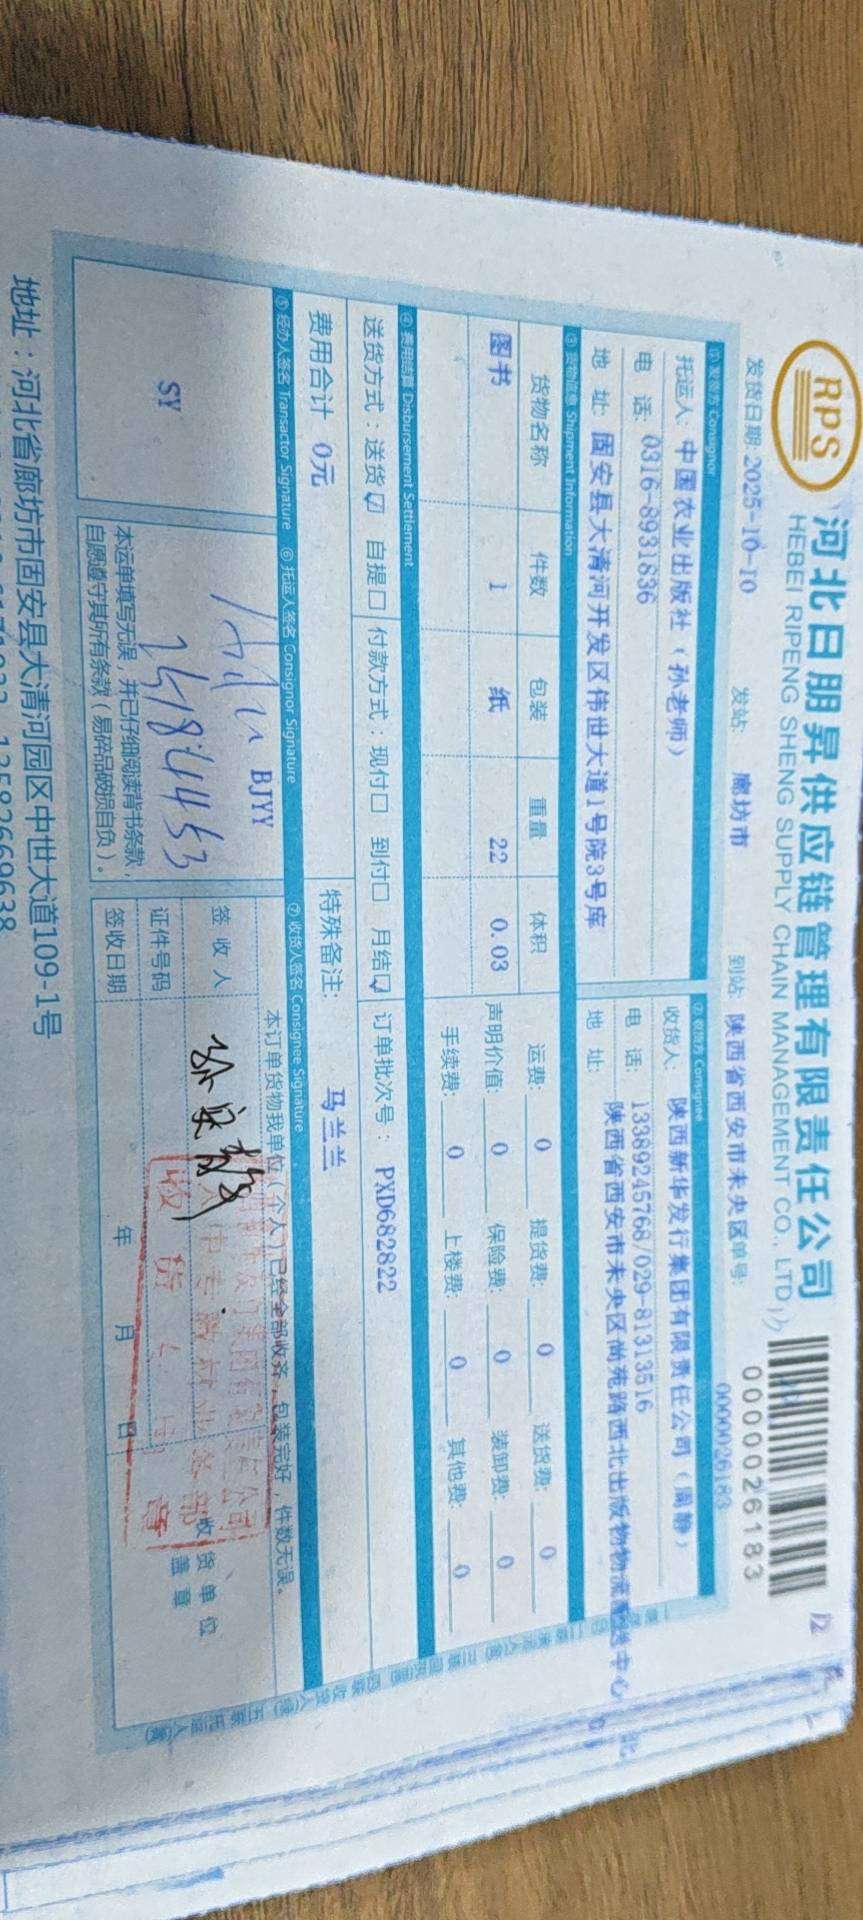 RPS
河北日朋昇供应链管理有限责任公司
HEBEI RIPENG SHENG SUPPLY CHAIN MANAGEMENT CO., LTD
0000026183
发货日期: 2025-10-10 发站: 廊坊市 到站: 陕西省西安市未央区 单号: 0000026183
① 发货方 Consignor
托运人: 中国农业出版社(孙老师)
电 话: 0316-8931836
地 址: 固安县大清河开发区伟世大道1号院3号库
② 收货方 Consignee
收货人: 陕西新华发行集团有限责任公司(周静)
电 话: 13389245768/029-81313516
地 址: 陕西省西安市未央区尚苑路西北出版物物流配送中心
③ 货物信息 Shipment Information
货物名称 件数 包装 重量 体积
图书 1 纸 22 0.03
运费: 0 提货费: 0 送货费: 0
声明价值: 0 保险费: 0 装卸费: 0
手续费: 0 上楼费: 0 其他费: 0
④ 费用结算 Disbursement Settlement
送货方式: 送货☑ 自提☐ 付款方式: 现付☐ 到付☐ 月结☑ 订单批次号: PXD682822
费用合计 0元 特殊备注: 马兰兰
⑤ 经办人签名 Transactor Signature ⑥ 托运人签名 Consignor Signature ⑦ 收货人签名 Consignee Signature
SY
BJYY
本运单填写无误,并已仔细阅读背书条款,
自愿遵守其所有条款(易碎品破损自负)。
本订单货物我单位(个人)已经全部收齐,包装完好,件数无误。
签 收 人
证件号码
签收日期 年 月 日
收货单位
盖章
地址:河北省廊坊市固安县大清河园区中世大道109-1号
13582669638